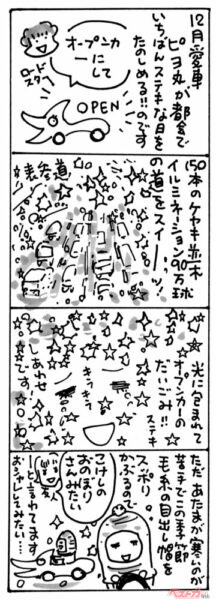 12月愛車
ピヨ丸が都会で
いちばんステキな日を
たのしめる!!のです
オープンカ
ーにして
ロド
スター
OPEN
150本のケヤキ並木
イルミネーション90万球
の道をスイーーッ
表参道
光に包まれて
オープンカーの
だいごみ!!
ステキ
キラキラ
しあわせ
です!
ただあたまが寒いのが
苦手でこの季節
毛糸の目出し帽を
スッポリ
かぶるので
こけしの
おのぼり
さんみたい
と言われてます
おシャレしてみたい…
ベストカーWeb